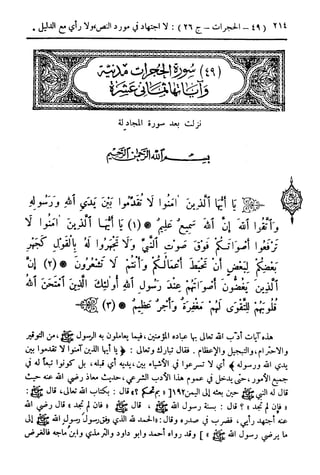 ٢١٤ (٤٩ – الحجرات – ج ٢٦) : لا اجتهاد في مورد النص، ولا رأي مع الدليل .
(٤٩) سورة الحجرات مدنية
وآياتها ثماني عشرة
نزلت بعد سورة المجادلة
بسم الله الرحمن الرحيم
يَا أَيُّهَا الَّذِينَ آمَنُوا لَا تُقَدِّمُوا بَيْنَ يَدَيِ اللَّهِ وَرَسُولِهِ
وَاتَّقُوا اللَّهَ إِنَّ اللَّهَ سَمِيعٌ عَلِيمٌ * (١) يَا أَيُّهَا الَّذِينَ آمَنُوا لَا
تَرْفَعُوا أَصْوَاتَكُمْ فَوْقَ صَوْتِ النَّبِيِّ وَلَا تَجْهَرُوا لَهُ بِالْقَوْلِ كَجَهْرِ
بَعْضِكُمْ لِبَعْضٍ أَن تَحْبَطَ أَعْمَالُكُمْ وَأَنتُمْ لَا تَشْعُرُونَ * (٢) إِنَّ
الَّذِينَ يَغُضُّونَ أَصْوَاتَهُمْ عِندَ رَسُولِ اللَّهِ أُولَٰئِكَ الَّذِينَ امْتَحَنَ اللَّهُ
قُلُوبَهُمْ لِلتَّقْوَىٰ لَهُم مَّغْفِرَةٌ وَأَجْرٌ عَظِيمٌ * (٣)
هذه آيات أدّب الله تعالى بها عباده المؤمنين، فيما يعاملون به الرسول ﷺ، من التوقير
والاحترام، والتبجيل والإعظام. فقال تبارك وتعالى : ﴿ يا أيها الذين آمنوا لا تقدموا بين
يدي الله ورسوله ﴾ أي لا تسرعوا في الأشياء بين يديه أي قبله، بل كونوا تبعاً له في
جميع الأمور، حتى يدخل في عموم هذا الأدب الشرعي، حديث معاذ رضي الله عنه حيث
قال له النبي ﷺ حين بعثه إلى اليمن١٩٢[ «بم تحكم ؟» قال : بكتاب الله تعالى، قال ﷺ :
«فإن لم تجد » ؟ قال : بسنة رسول الله ﷺ ، قال ﷺ : «فإن لم تجد» قال رضي الله
عنه أجتهد رأيي، فضرب في صدره وقال : «الحمد لله الذي وفق رسول رسول الله ﷺ إلى
ما يرضي رسول الله ﷺ » ] وقد رواه أحمد وأبو داود والترمذي وابن ماجه فالغرض